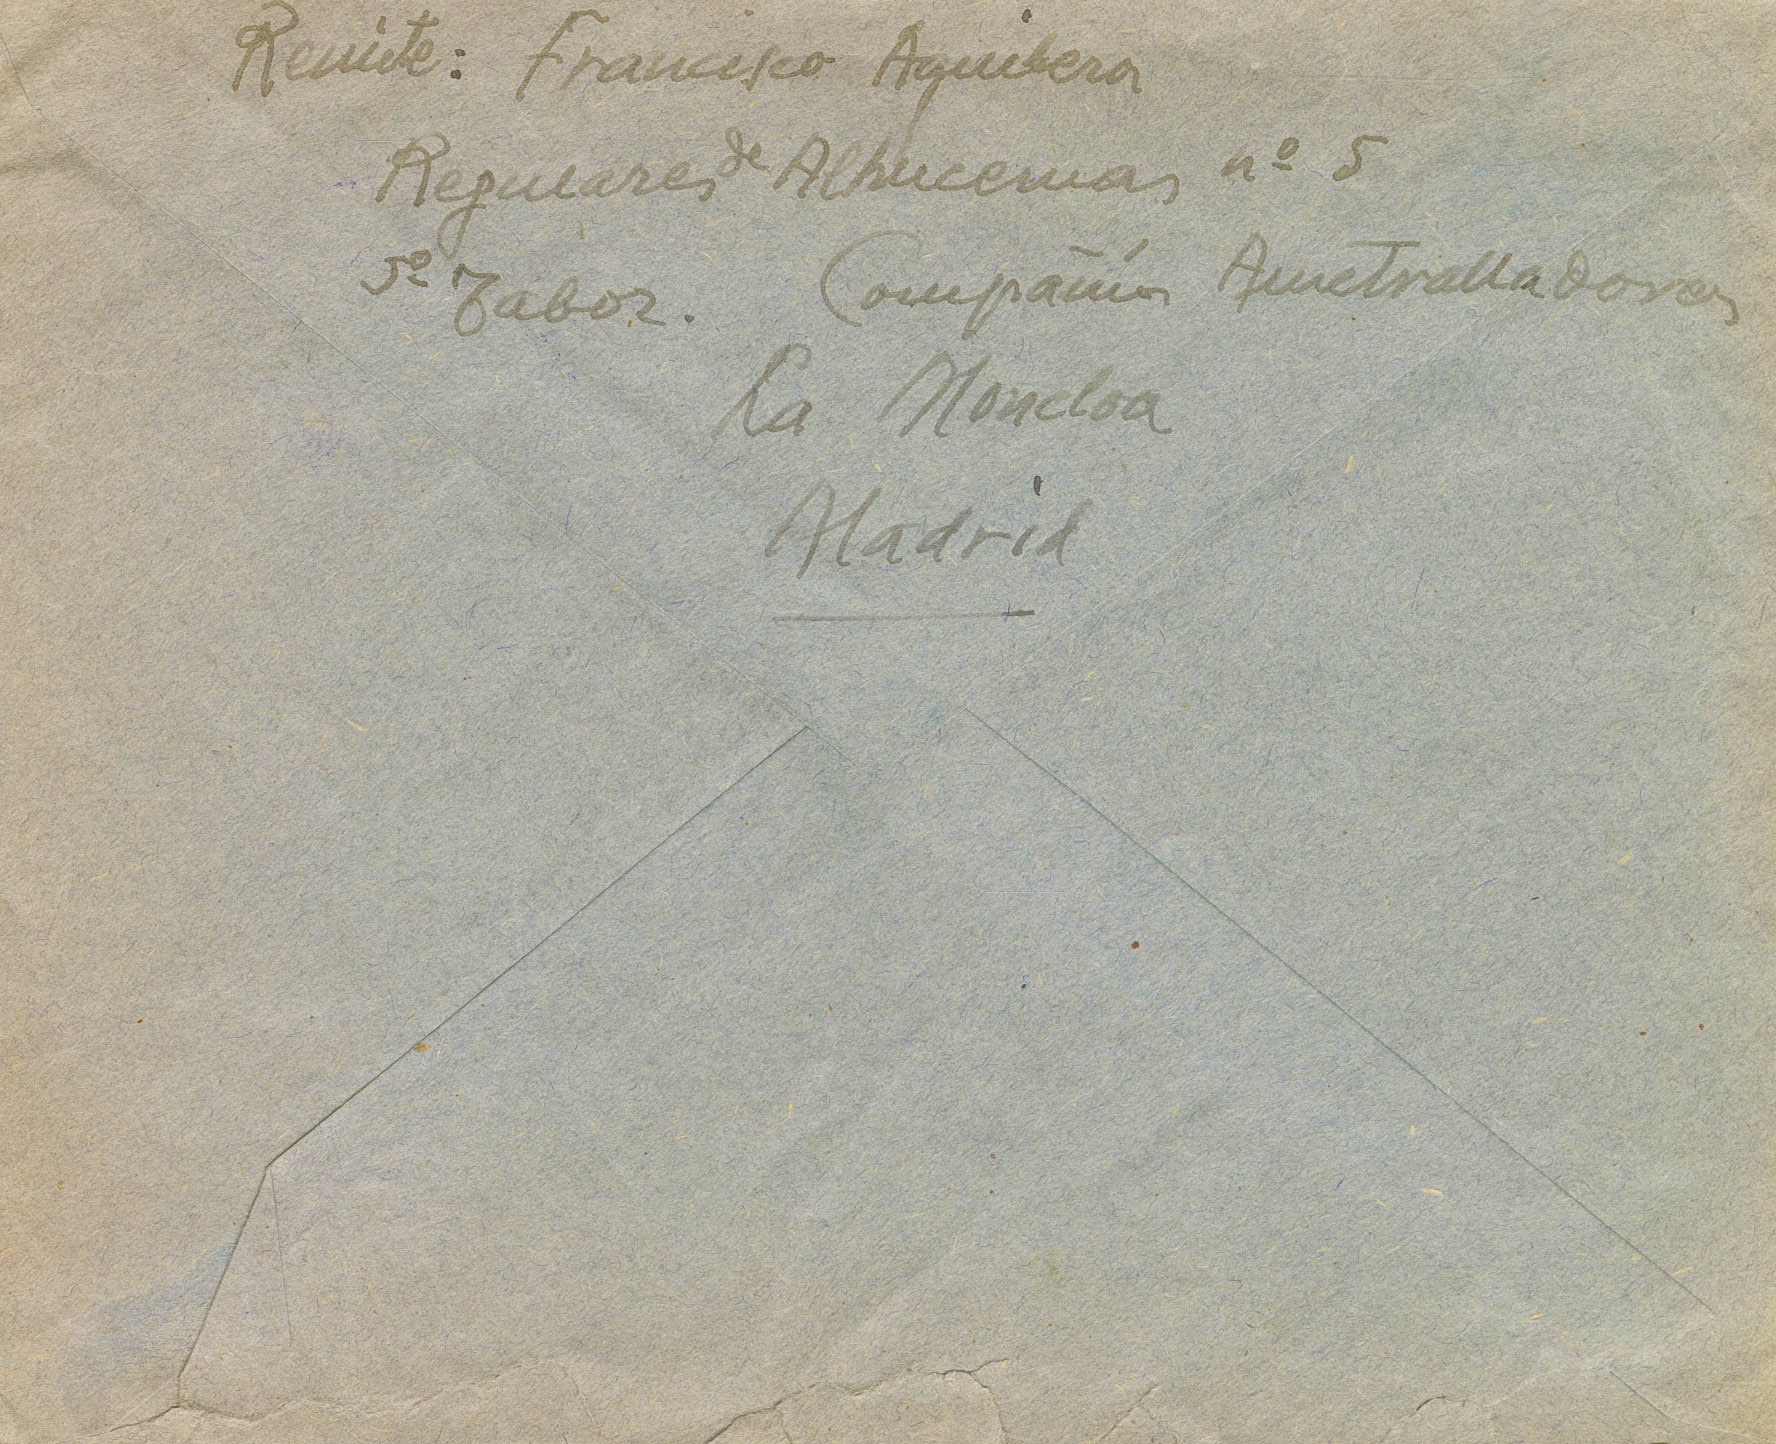 Remite: Francisco Aguilera
Regulares de Alhucemas nº 5
5º Tabor. Compañía Ametralladoras
La Moncloa
Madrid